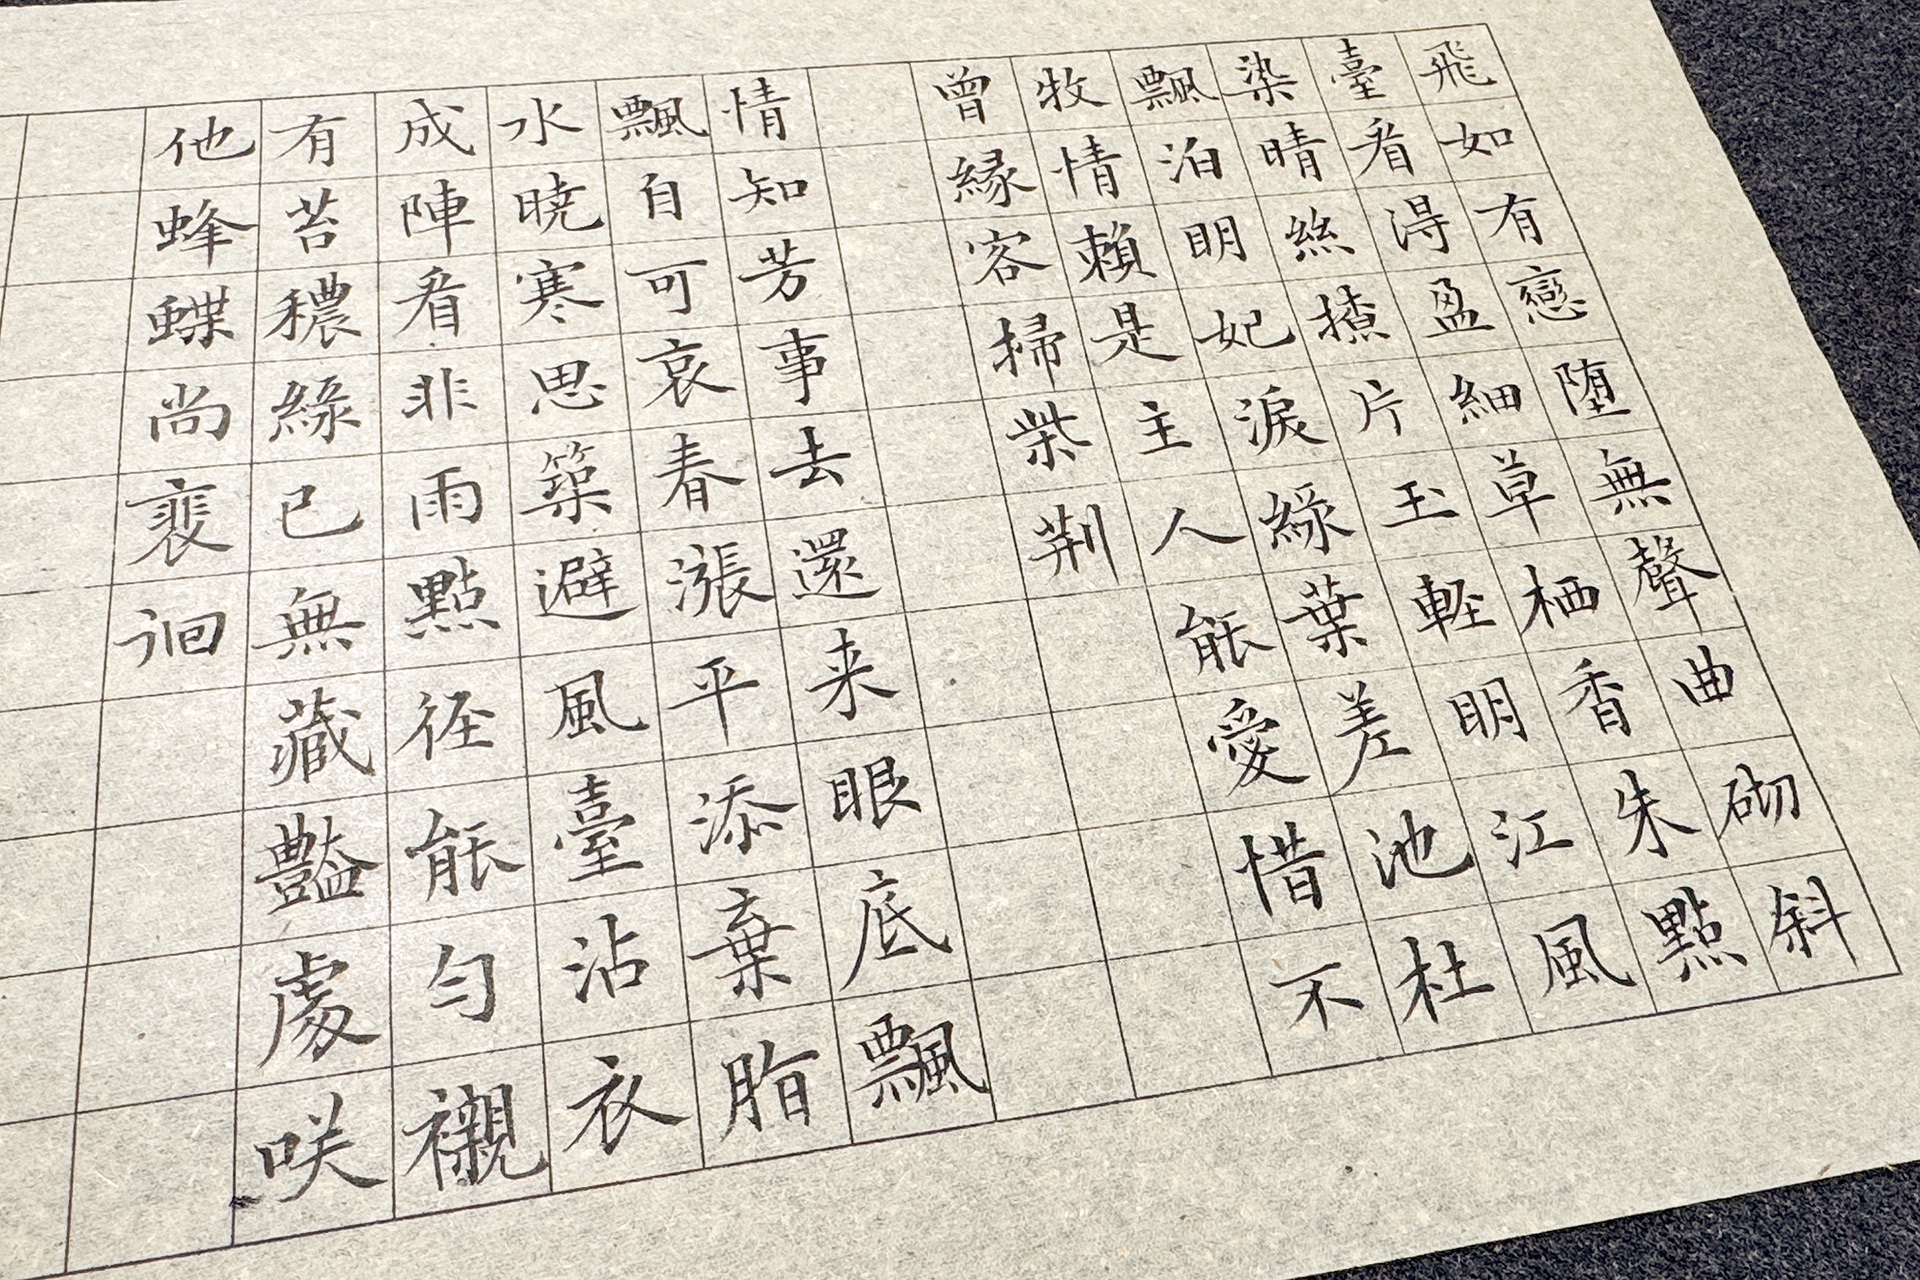 飛如有戀堕無聲曲砌斜
臺看得盈細草栖香朱點
染晴絲撩片玉軽明江風
飄泊明妃淚緑葉差池杜
牧情賴是主人能愛惜不
曾緣容掃柴荆
情知芳事去還来眼底飄
飄自可哀春漲平添棄脂
水暁寒思築避風臺沾衣
成陣看非雨點径能勻襯
有苔穠緑已無藏豔處咲
他蜂蝶尚裵徊